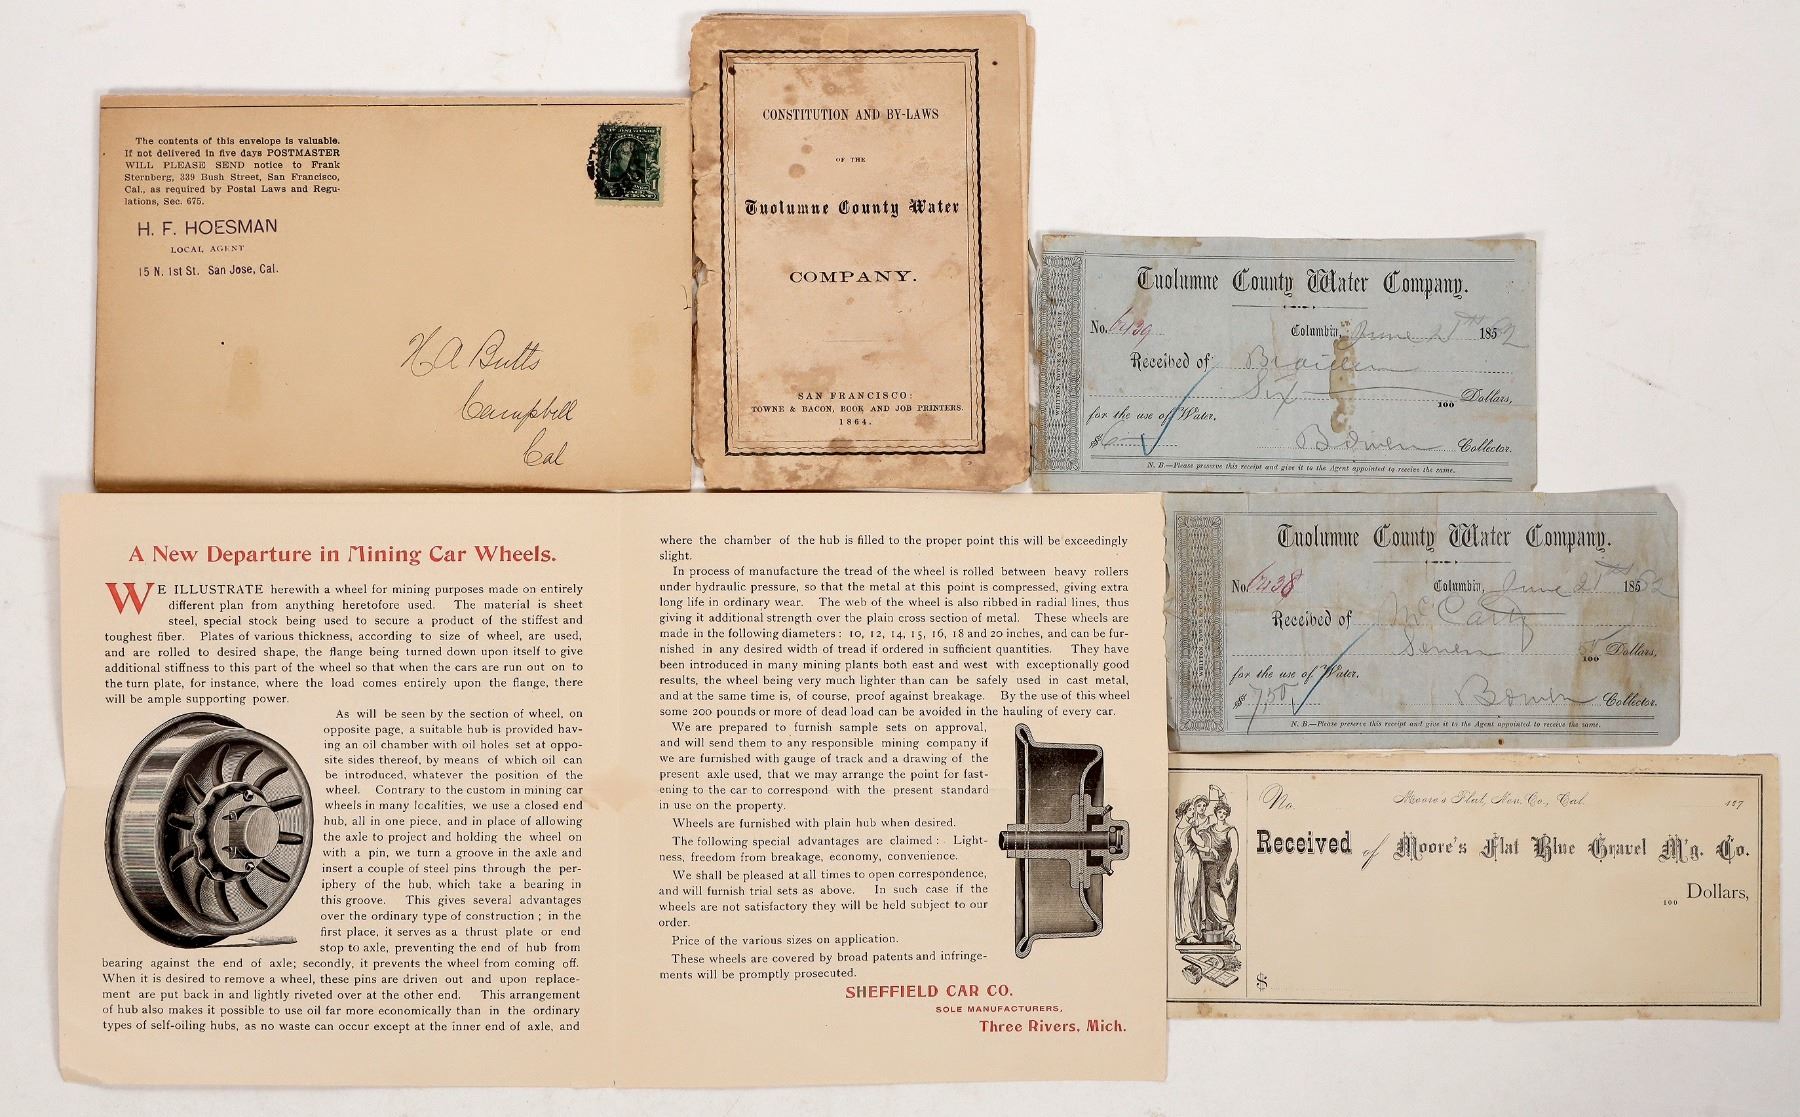 The contents of this envelope is valuable.
If not delivered in five days POSTMASTER
WILL PLEASE SEND notice to Frank
Sternberg, 339 Bush Street, San Francisco,
Cal., as required by Postal Laws and Regu-
lations, Sec. 675.
H. F. HOESMAN
LOCAL AGENT
15 N. 1st St. San Jose, Cal.
H A Butts
Campbell
Cal
CONSTITUTION AND BY-LAWS
OF THE
Tuolumne County Water
COMPANY.
SAN FRANCISCO:
TOWNE & BACON, BOOK AND JOB PRINTERS.
1864.
Tuolumne County Water Company.
No. 6439
Columbia, June 21st 1852
Received of
Six Dollars,
100
for the use of Water.
$6
Bowen Collector.
N. B.—Please preserve this receipt and give it to the Agent appointed to receive the same.
Tuolumne County Water Company.
No. 6438
Columbia, June 21st 1852
Received of McCarty
Seven 50 Dollars,
100
for the use of Water.
$7,50
Bowen Collector.
N. B.—Please preserve this receipt and give it to the Agent appointed to receive the same.
No.
Moore's Flat, Nev. Co., Cal. 187
Received of Moore's Flat Blue Gravel M'g. Co.
100 Dollars,
$
A New Departure in Mining Car Wheels.
WE ILLUSTRATE herewith a wheel for mining purposes made on entirely
different plan from anything heretofore used. The material is sheet
steel, special stock being used to secure a product of the stiffest and
toughest fiber. Plates of various thickness, according to size of wheel, are used,
and are rolled to desired shape, the flange being turned down upon itself to give
additional stiffness to this part of the wheel so that when the cars are run out on to
the turn plate, for instance, where the load comes entirely upon the flange, there
will be ample supporting power.
As will be seen by the section of wheel, on
opposite page, a suitable hub is provided hav-
ing an oil chamber with oil holes set at oppo-
site sides thereof, by means of which oil can
be introduced, whatever the position of the
wheel. Contrary to the custom in mining car
wheels in many localities, we use a closed end
hub, all in one piece, and in place of allowing
the axle to project and holding the wheel on
with a pin, we turn a groove in the axle and
insert a couple of steel pins through the per-
iphery of the hub, which take a bearing in
this groove. This gives several advantages
over the ordinary type of construction; in the
first place, it serves as a thrust plate or end
stop to axle, preventing the end of hub from
bearing against the end of axle; secondly, it prevents the wheel from coming off.
When it is desired to remove a wheel, these pins are driven out and upon replace-
ment are put back in and lightly riveted over at the other end. This arrangement
of hub also makes it possible to use oil far more economically than in the ordinary
types of self-oiling hubs, as no waste can occur except at the inner end of axle, and
where the chamber of the hub is filled to the proper point this will be exceedingly
slight.
In process of manufacture the tread of the wheel is rolled between heavy rollers
under hydraulic pressure, so that the metal at this point is compressed, giving extra
long life in ordinary wear. The web of the wheel is also ribbed in radial lines, thus
giving it additional strength over the plain cross section of metal. These wheels are
made in the following diameters: 10, 12, 14, 15, 16, 18 and 20 inches, and can be fur-
nished in any desired width of tread if ordered in sufficient quantities. They have
been introduced in many mining plants both east and west with exceptionally good
results, the wheel being very much lighter than can be safely used in cast metal,
and at the same time is, of course, proof against breakage. By the use of this wheel
some 200 pounds or more of dead load can be avoided in the hauling of every car.
We are prepared to furnish sample sets on approval,
and will send them to any responsible mining company if
we are furnished with gauge of track and a drawing of the
present axle used, that we may arrange the point for fast-
ening to the car to correspond with the present standard
in use on the property.
Wheels are furnished with plain hub when desired.
The following special advantages are claimed: Light-
ness, freedom from breakage, economy, convenience.
We shall be pleased at all times to open correspondence,
and will furnish trial sets as above. In such case if the
wheels are not satisfactory they will be held subject to our
order.
Price of the various sizes on application.
These wheels are covered by broad patents and infringe-
ments will be promptly prosecuted.
SHEFFIELD CAR CO.
SOLE MANUFACTURERS,
Three Rivers, Mich.